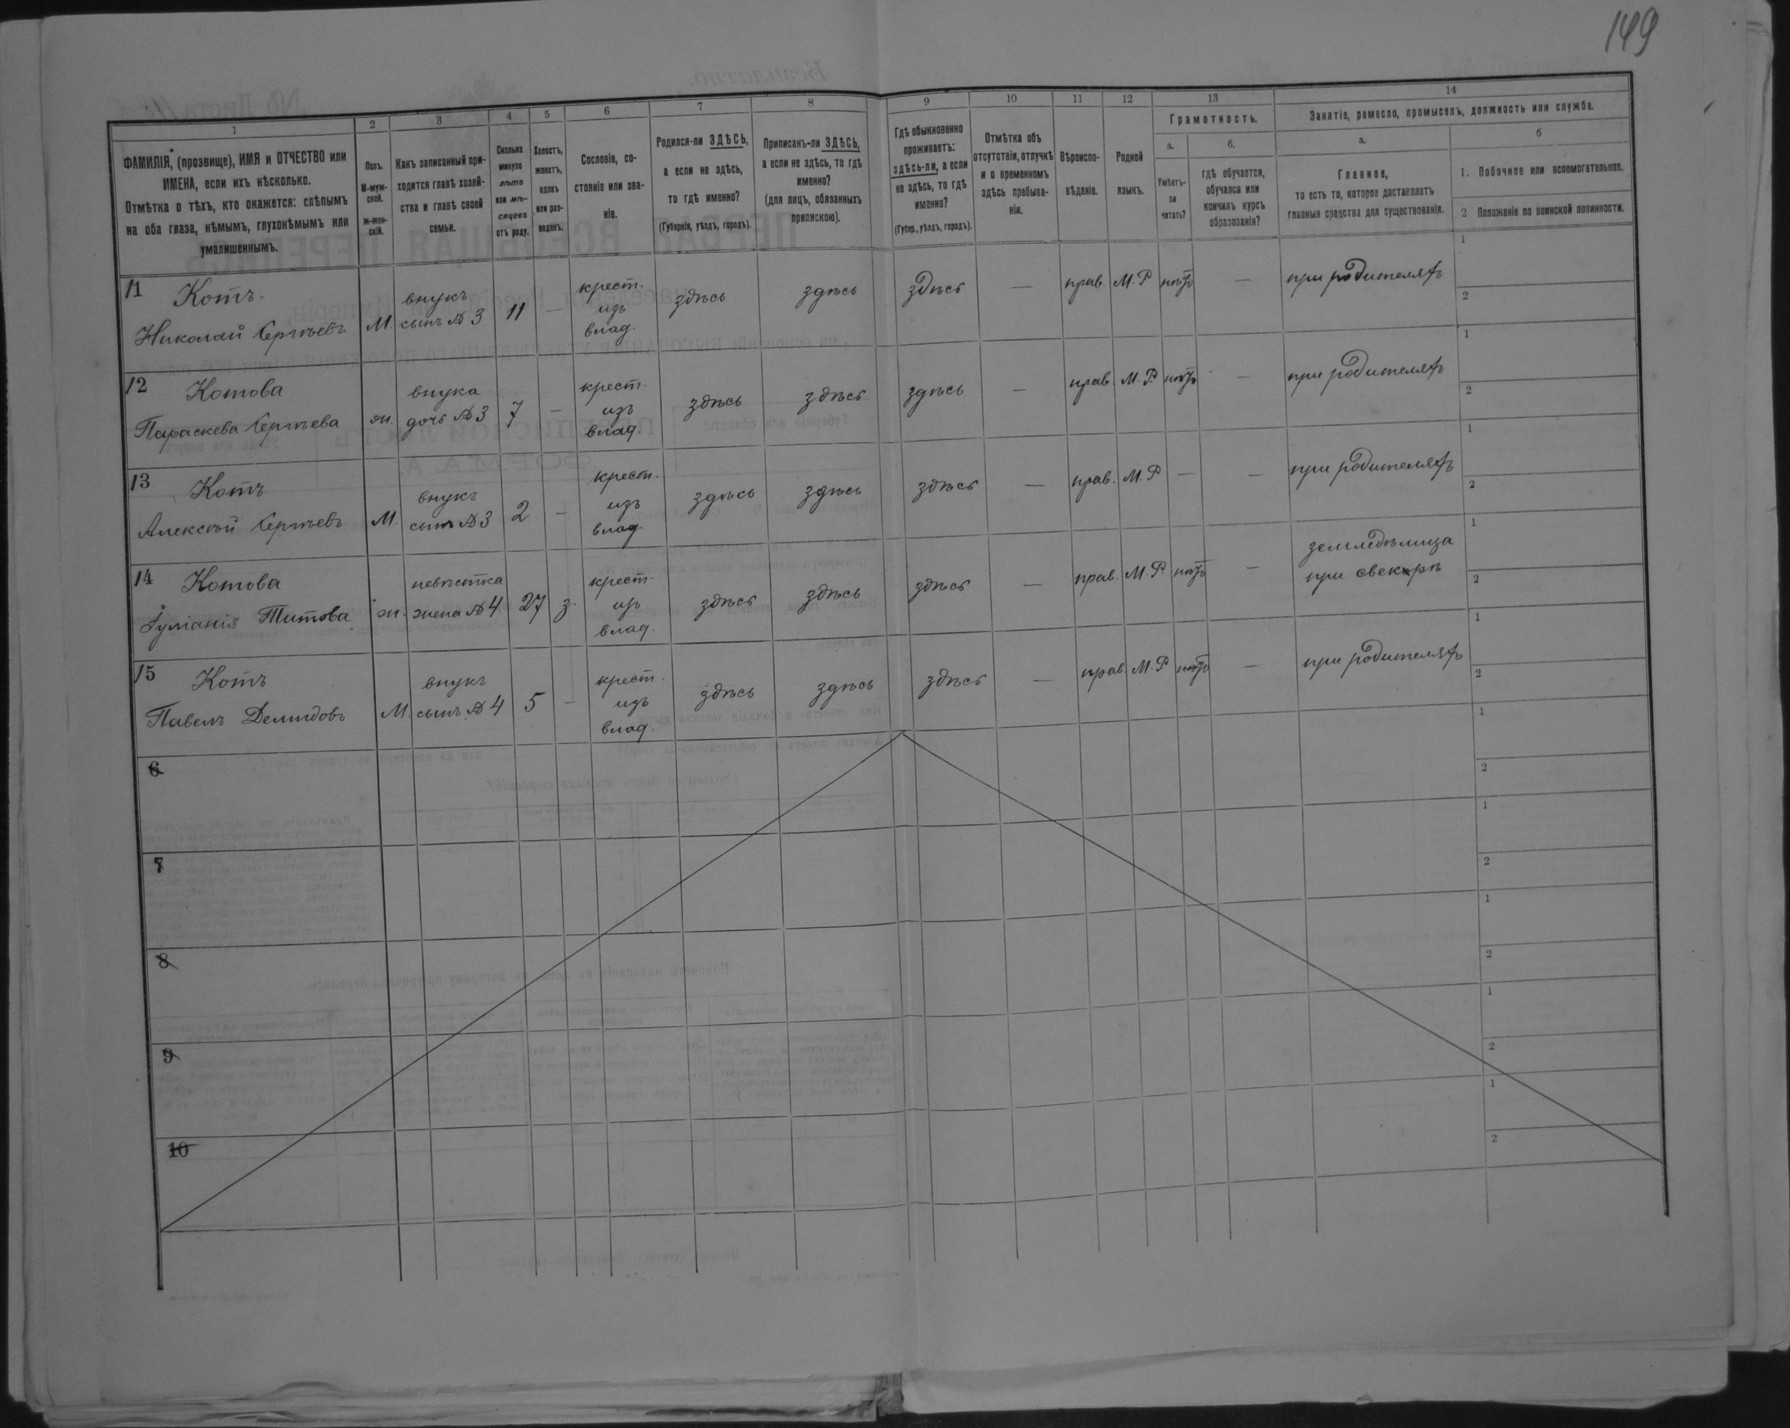 149
1
2
3
4
5
6
7
8
9
10
11
12
13
14
ФАМИЛІЯ, (прозвище), ИМЯ и ОТЧЕСТВО или
ИМЕНА, если ихъ нѣсколько.
Отмѣтка о тѣхъ, кто окажется: слѣпымъ
на оба глаза, нѣмымъ, глухонѣмымъ или
умалишеннымъ.
Полъ.
М-муж-
ской.
Ж-жен-
скій.
Какъ записанный при-
ходится главѣ хозяй-
ства и главѣ своей
семьи.
Сколько
минуло
лѣтъ
или мѣ-
сяцевъ
отъ роду.
Холостъ,
женатъ,
вдовъ
или раз-
веденъ.
Сословіе, со-
стояніе или зва-
ніе.
Родился-ли ЗДѢСЬ,
а если не здѣсь,
то гдѣ именно?
(Губернія, уѣздъ, городъ).
Приписанъ-ли ЗДѢСЬ,
а если не здѣсь, то гдѣ
именно?
(для лицъ, обязанныхъ
припискою).
Гдѣ обыкновенно
проживаетъ:
здѣсь-ли, а если
не здѣсь, то гдѣ
именно?
(Губер., уѣздъ, городъ).
Отмѣтка объ
отсутствіи, отлучкѣ
и о временномъ
здѣсь пребыва-
ніи.
Вѣроиспо-
вѣданіе.
Родной
языкъ.
Грамотность.
а.
Умѣетъ-
ли
читать?
б.
гдѣ обучается,
обучался или
кончилъ курсъ
образованія?
Занятіе, ремесло, промыселъ, должность или служба.
а.
Главное,
то есть то, которое доставляетъ
главныя средства для существованія.
б
1. Побочное или вспомогательное.
2 Положеніе по воинской повинности.
11 Котъ
Николай Сергѣевъ
М.
внукъ
сынъ № 3
11
—
крест.
изъ
влад.
здѣсь
здѣсь
здѣсь
—
прав.
М. Р
нѣтъ
—
при родителяхъ
1
2
12 Котова
Параскева Сергѣева
ж.
внука
дочь № 3
7
—
крест.
изъ
влад.
здѣсь
здѣсь
здѣсь
—
прав.
М. Р.
нѣтъ
—
при родителяхъ
1
2
13 Котъ
Алексѣй Сергѣевъ
М.
внукъ
сынъ № 3
2
—
крест.
изъ
влад.
здѣсь
здѣсь
здѣсь
—
прав.
М. Р
—
—
при родителяхъ
1
2
14 Котова
Титова
ж.
невѣстка
жена № 4
27
з.
крест.
изъ
влад.
здѣсь
здѣсь
здѣсь
—
прав.
М. Р
нѣтъ
—
земледѣлица
при свекрѣ
1
2
15 Котъ
Павелъ Демидовъ
М.
внукъ
сынъ № 4
5
—
крест.
изъ
влад.
здѣсь
здѣсь
здѣсь
—
прав
М. Р
нѣтъ
—
при родителяхъ
1
2
6
1
2
7
1
2
8
1
2
9
1
2
10
1
2